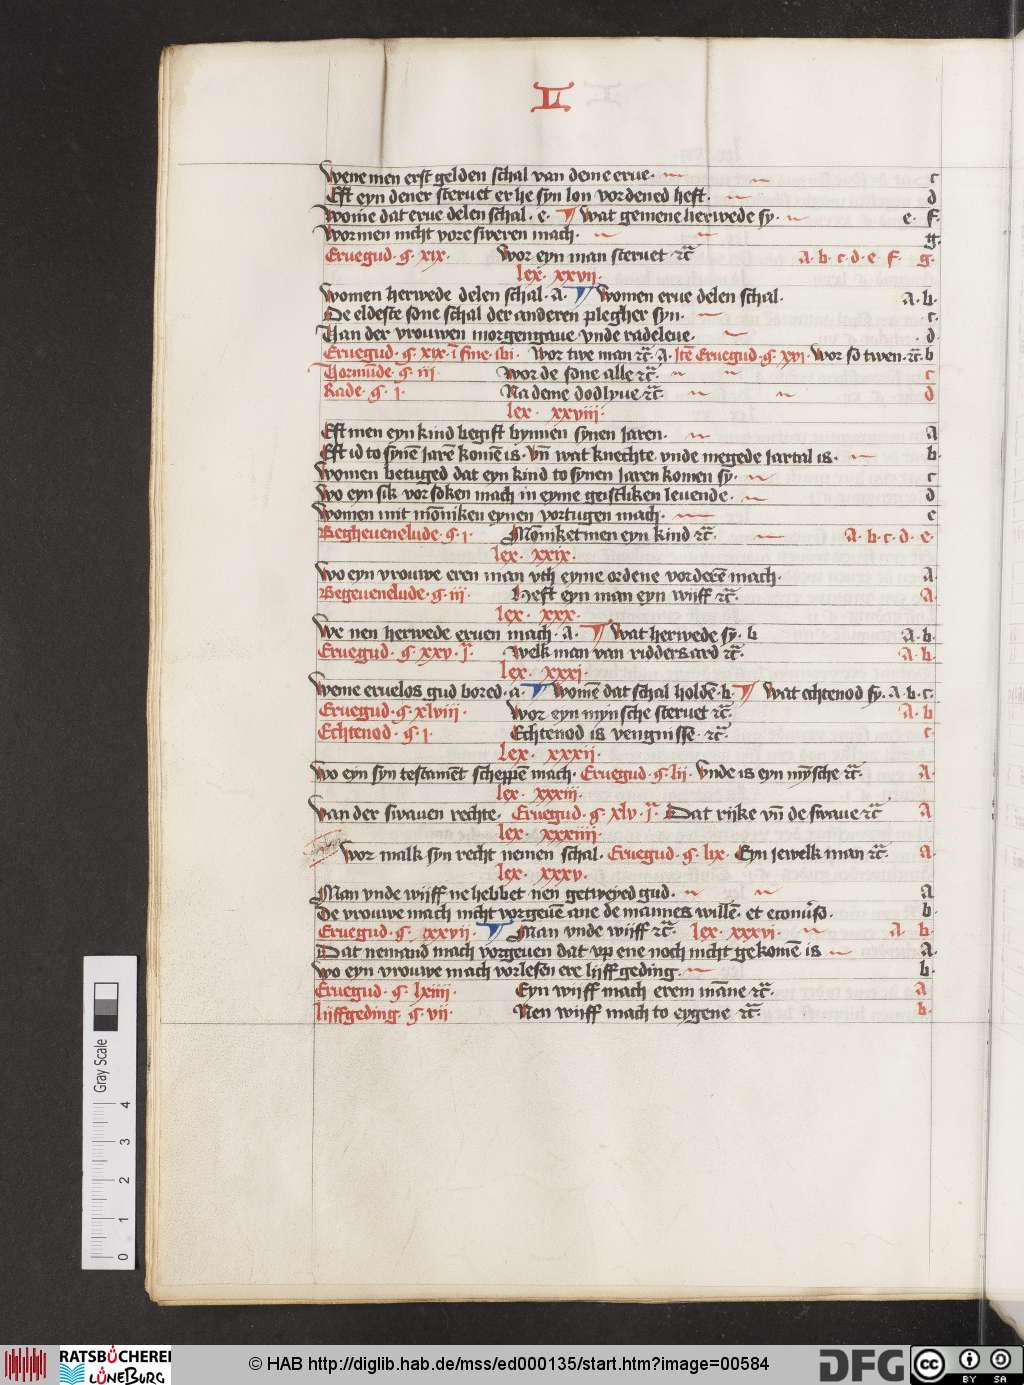 LI
Wene men erst gelden schal van deme erue. c
Eft eyn dener steruet er he syn lon vordened heft. d
Wome dat erue delen schal. e. ¶ Wat gemene herwede sy. e. f.
Wormen nicht vore sweren mach. g.
Eruegud. §. xix. Wor eyn man steruet ꝛc̄ a. b. c. d. e. f. g.
lex. xxvii.
Women herwede delen schal. a. ¶ Women erue delen schal. a. b.
De eldeste sone schal der anderen plegher syn. c.
Uan der vrouwen morgengaue vnde radeleue. d
Eruegud. §. xix. ī fine. ibi. Wor twe man ꝛc̄. a. Itē Eruegud. §. xxi. Wor so twen. ꝛc̄. b
Uormūde. §. iii. Wor de sone alle ꝛc̄. c
Rade. §. i. Na deme dodlyue ꝛc̄. d
lex. xxviii.
Eft men eyn kind begift bynnen synen Jaren. a
Eft id to synē Jarē komē is. vn̄ wat knechte vnde megede Jartal is. b.
Women betuged dat eyn kind to synen Jaren komen sy. c
Wo eyn sik vorsoken mach in eyme geistliken leuende. d
Women mit mōniken eynen vortugen mach. e
Begheuenelude. §. i. Moniket men eyn kind ꝛc̄. a. b. c. d. e.
lex. xxix.
Wo eyn vrouwe eren man vth eyme ordene vorderē mach. a.
Begeuenelude. §. iii. Heft eyn man eyn wijff ꝛc̄. a.
lex. xxx.
We nen herwede eruen mach. a. ¶ Wat herwede sy. b a. b.
Eruegud. §. xxv. J. Welk man van ridders ard ꝛc̄. a. b.
lex. xxxi.
Weme eruelos gud bored. a. ¶ Womē dat schal holdē. b. ¶ Wat echtenod sy. a. b. c.
Eruegud. §. xlviii. Wor eyn mynsche steruet ꝛc̄. a. b
Echtenod. §. i. Echtenod is vengnisse. ꝛc̄. c
lex. xxxii.
Wo eyn syn testamēt scheppen mach. Eruegud. §. lii. Vnde is eyn mynsche ꝛc̄. a.
lex. xxxiii.
Van der swauen rechte. Eruegud. §. xlv. J. Dat rijke vn̄ de swaue ꝛc̄ a
lex. xxxiiii
Wor malk syn recht nemen schal. Eruegud. §. lix. Eyn Jewelk man ꝛc̄. a.
lex. xxxv.
Man vnde wijff ne hebbet nen getweyed gud. a
De vrouwe mach nicht vorgeuē ane de mannes willē. et econuso. b.
Eruegud. §. lxxvii. ¶ Man vnde wijff ꝛc̄. lex. xxxvi. a. b.
Dat nemand mach vorgeuen dat vp ene noch nicht gekomē is a.
Wo eyn vrouwe mach vorlesen ere lijffgeding. b.
Eruegud. §. lxiiii. Eyn wijff mach erem māne ꝛc̄. a
Lijffgeding. §. vii. Nen wijff mach to eygene ꝛc̄. b.
Gray Scale
0 1 2 3 4
RATSBÜCHEREI LÜNEBURG
© HAB http://diglib.hab.de/mss/ed000135/start.htm?image=00584
DFG
cc BY SA